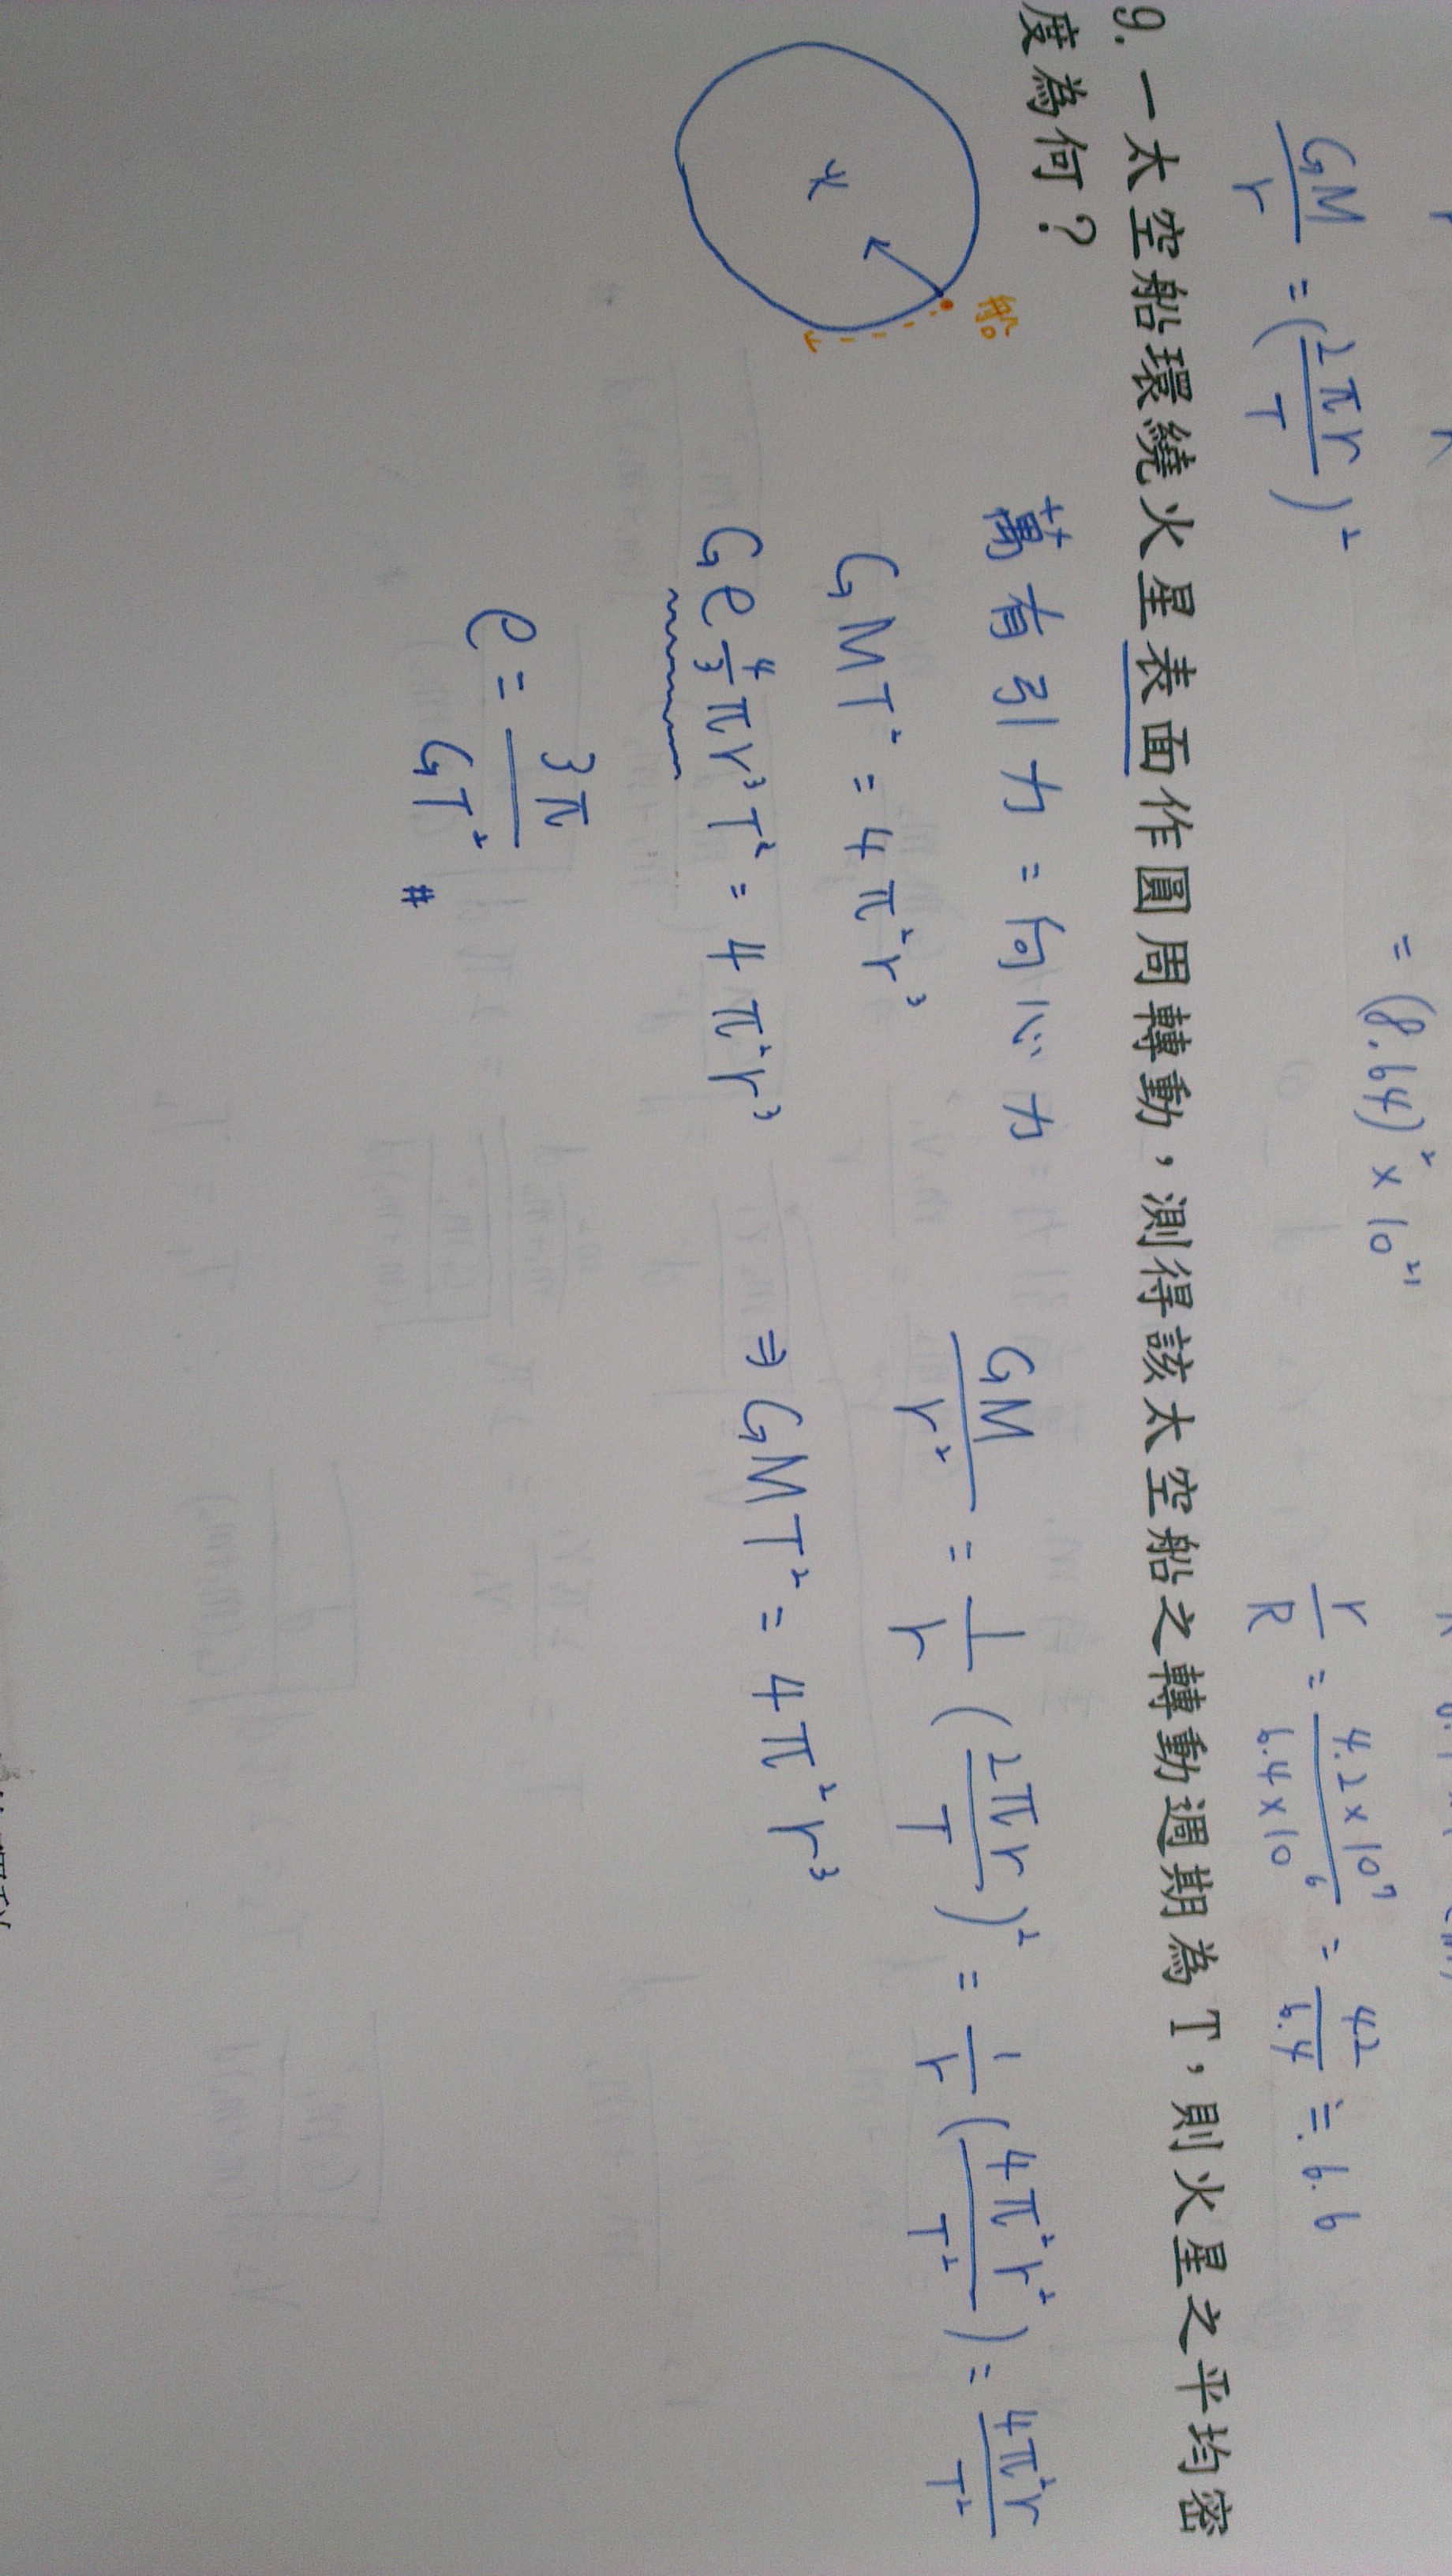 = (8.64)² × 10²¹
GM/r = (2πr/T)²
r/R = 4.2×10⁷/6.4×10⁶ = 42/6.4 ≒ 6.6
9. 一太空船環繞火星表面作圓周轉動，測得該太空船之轉動週期為 T，則火星之平均密
度為何？
船
火
萬有引力 = 向心力
GM/r² = 1/r (2πr/T)² = 1/r (4π²r²/T²) = 4π²r/T²
GMT² = 4π²r³
⇒ GMT² = 4π²r³
Gρ4/3πr³T² = 4π²r³
ρ = 3π/GT² #